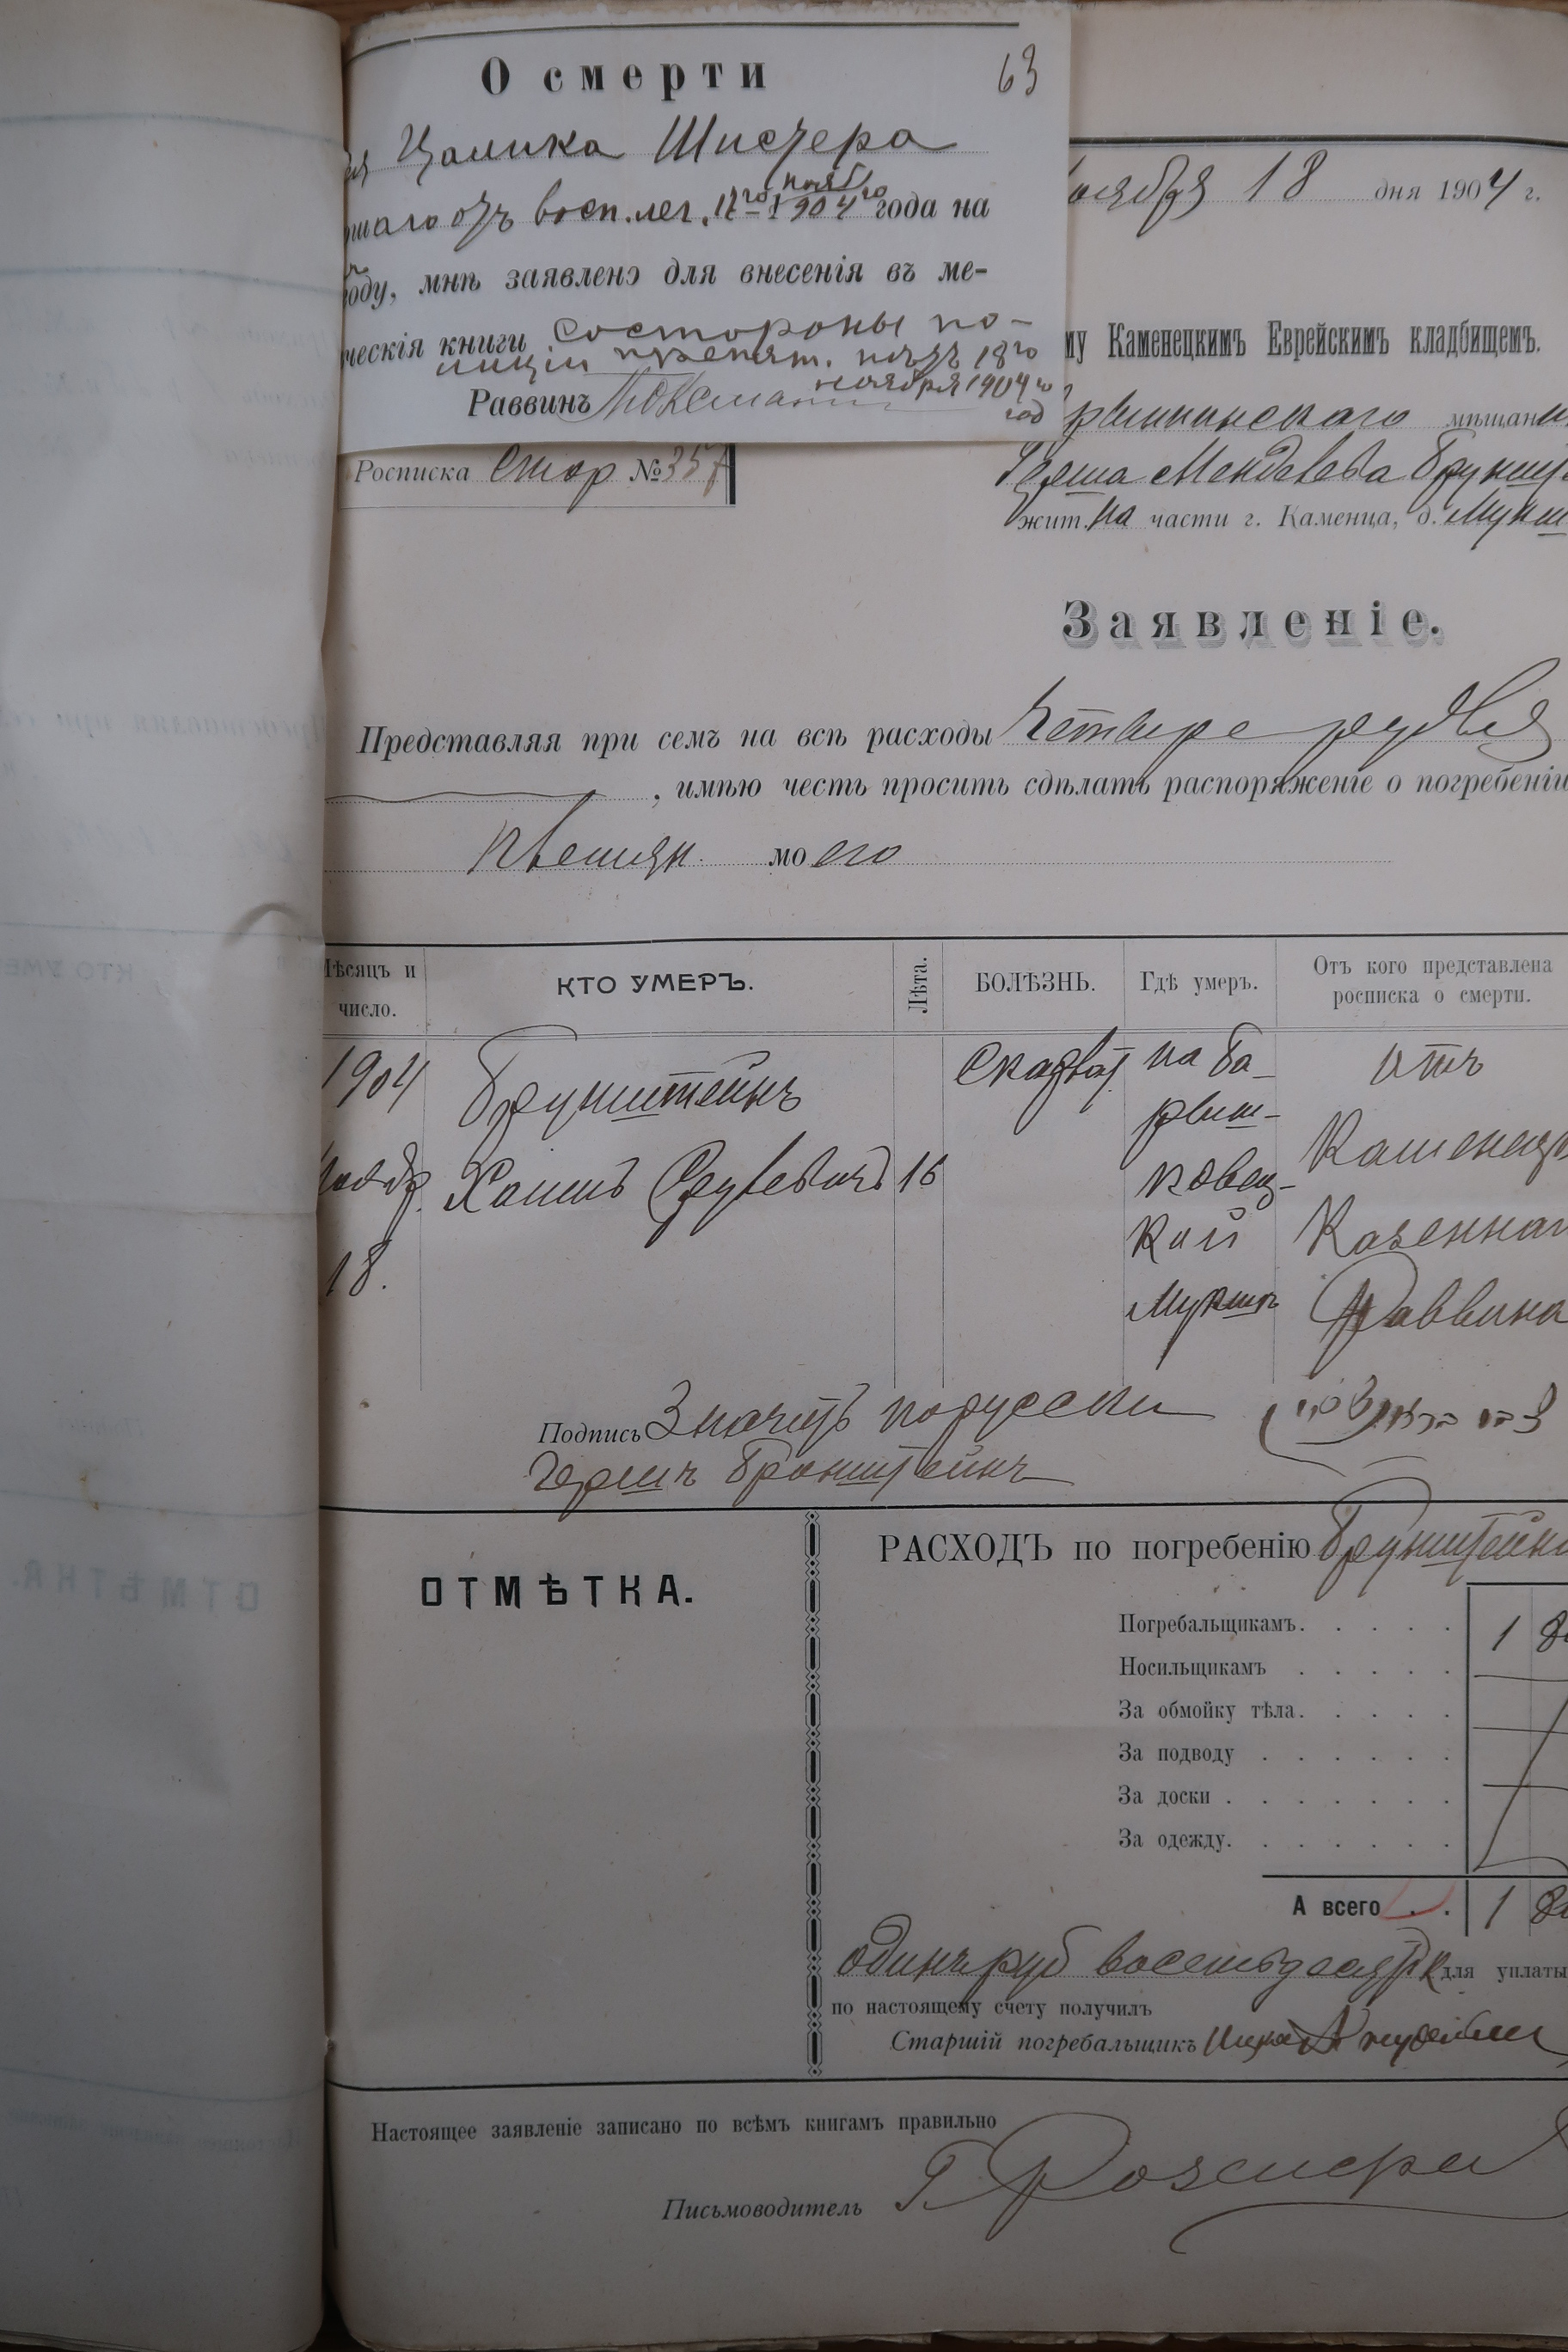 О смерти
63
Цалика Шистера
отъ восп. лег. 17го нояб 1904го года на
оду, мнѣ заявлено для внесенія въ ме-
ческія книги со стороны по-
лиціи препят. нѣтъ 18го
ноября 1904го
год
Раввинъ
оября 18 дня 1904 г.
му Каменецкимъ Еврейскимъ кладбищемъ.
мѣщани
Герша Менделева Бруншт
жит. на части г. Каменца, д. Мукш
Росписка Стор №357
Заявленіе.
Представляя при семъ на всѣ расходы Четыре рубля
, имѣю честь просить сдѣлать распоряженіе о погребеніи
племян. моего
Мѣсяцъ и число.
КТО УМЕРЪ.
Лѣта.
БОЛѢЗНЬ.
Гдѣ умеръ.
Отъ кого представлена росписка о смерти.
1904
Ноябр.
18.
Брунштейнъ
Хаимъ
16
на Ба-
рыш-
ковец-
кой
Мукшѣ
Отъ
Каменец
Казеннаг
Раввина
Подпись Значитъ порусски
Гершъ Бронштейнъ
ОТМѢТКА.
РАСХОДЪ по погребенію Брунштейн
Погребальщикамъ. 1 8
Носильщикамъ
За обмойку тѣла.
За подводу
За доски
За одежду.
А всего 1 8
одинъ руб восемьдесят к для уплаты
по настоящему счету получилъ
Старшій погребальщикъ
Настоящее заявленіе записано по всѣмъ книгамъ правильно
Письмоводитель